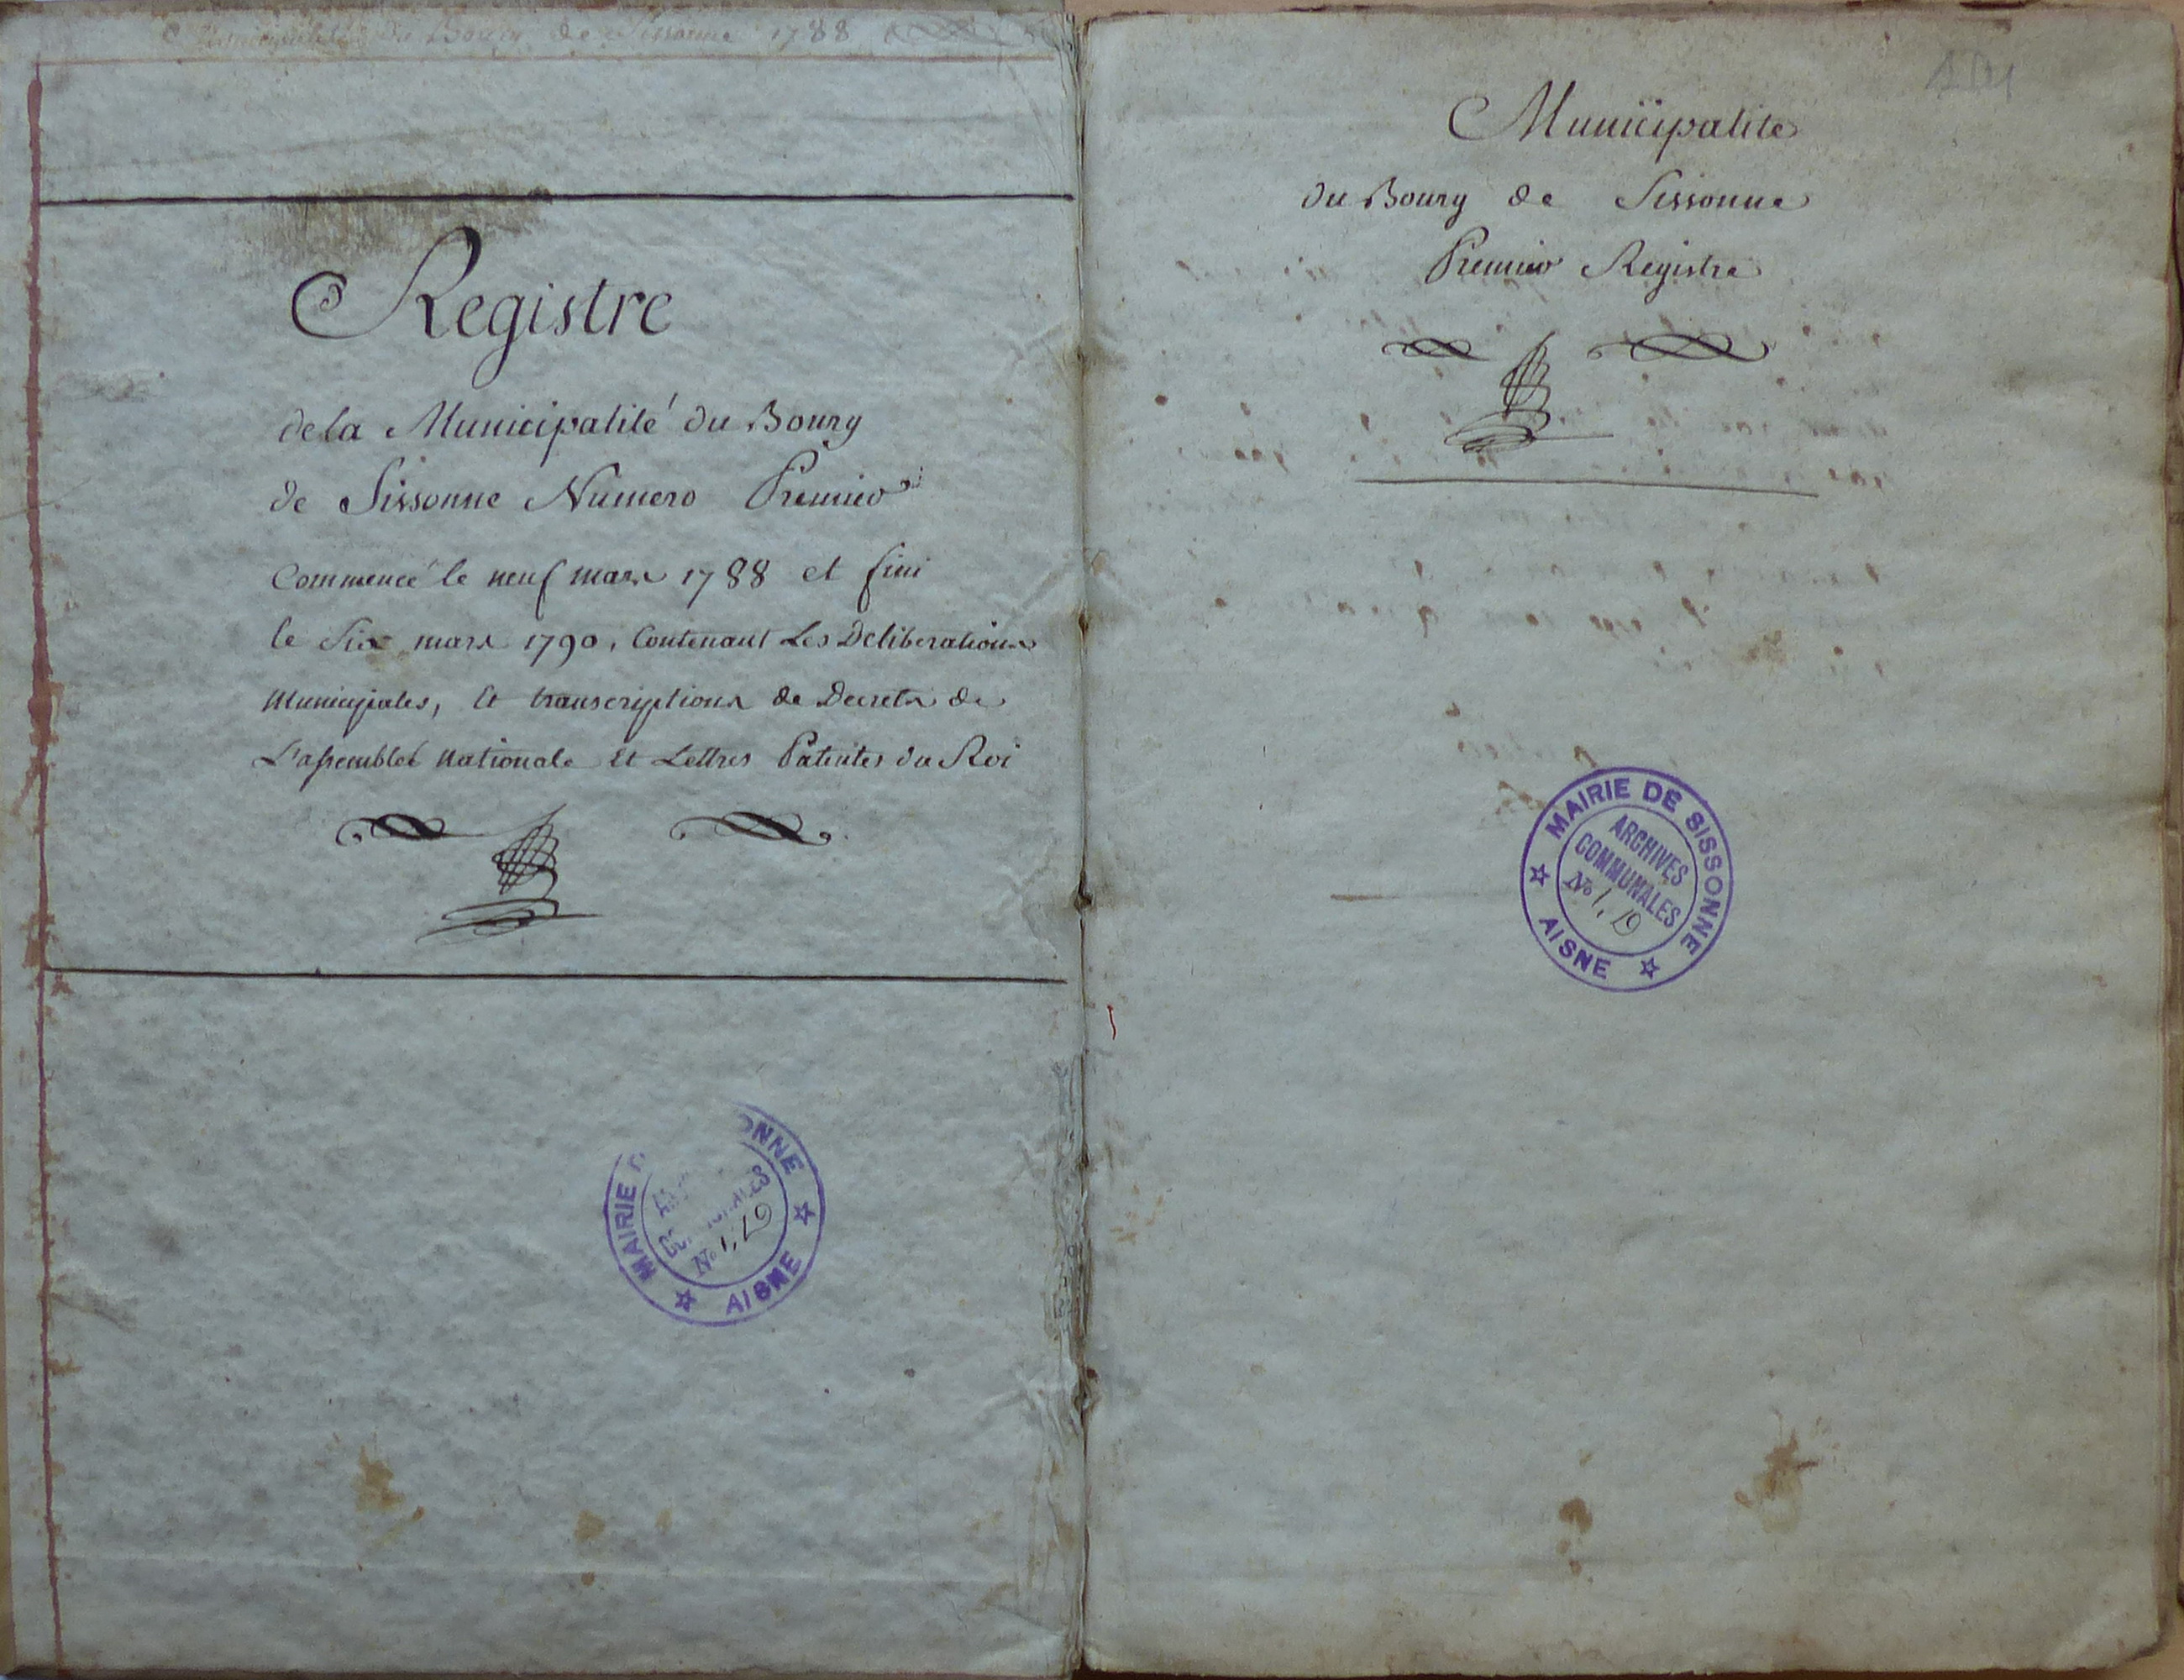 Municipalité du Bourg de Sissonne 1788
Registre
de la Municipalité du Bourg
de Sissonne Numero Premier
Commencé le neuf mars 1788 et fini
le Six mars 1790, Contenant Les Deliberations
Municipales, Et transcriptions de Decrets de
L'assemblée Nationale Et Lettres Patentes du Roi
MAIRIE ONNE
AISNE
No 1,
Municipalite
du Bourg de Sissonne
Premier Registre
MAIRIE DE SISSONNE
ARCHIVES
COMMUNALES
No 1,
AISNE